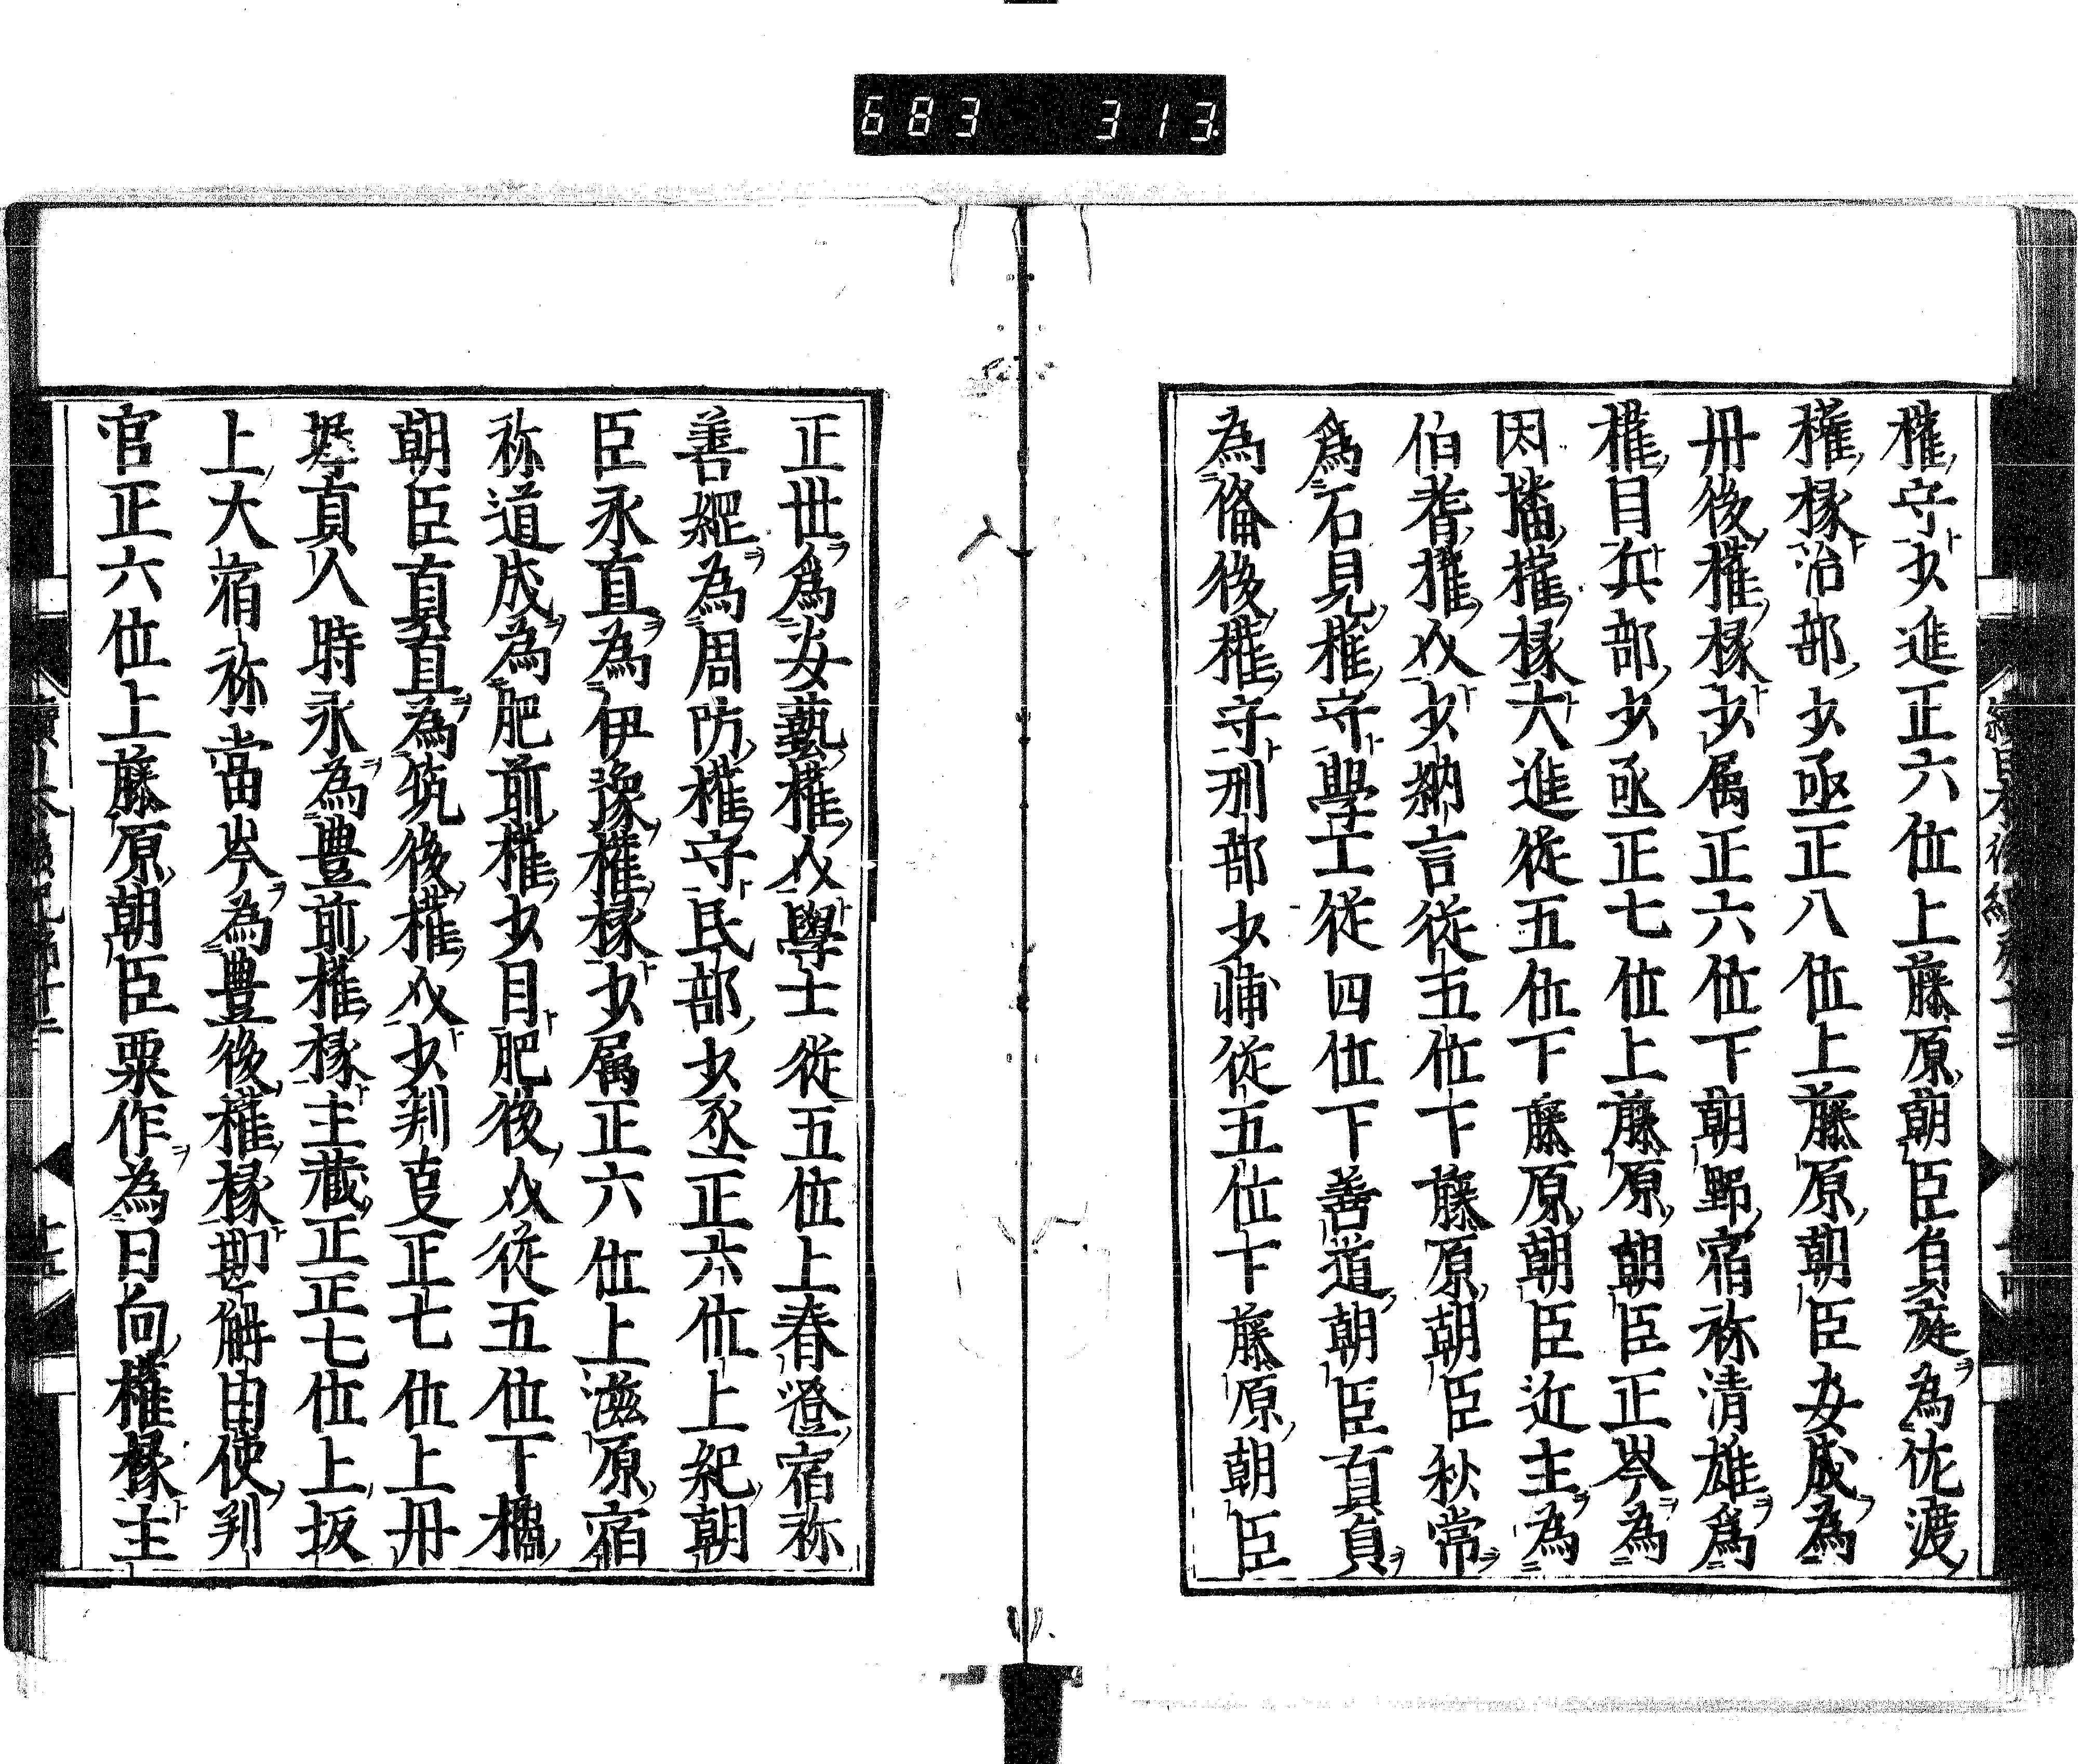 683 313
權守少進正六位上藤原朝臣貞庭為佐渡
權掾治部少丞正八位上藤原朝臣安成為
丹後權掾少属正六位下朝野宿祢清雄爲
權目兵部少丞正七位上藤原朝臣正岑為
因播權掾大進從五位下藤原朝臣近主為
伯耆權介少納言從五位下藤原朝臣秋常
爲石見權守學士從四位下善道朝臣真貞
為備後權守刑部少輔從五位下藤原朝臣
正世爲安藝權介學士從五位上春澄宿祢
善繩為周防權守民部少丞正六位上紀朝
臣永直為伊豫權掾少属正六位上滋原宿
祢道成為肥前權少目肥後介從五位下橘
朝臣真直為筑後權介少判事正七位上丹
墀真人時永為豊前權掾主藏正正七位上坂
上大宿祢當岑為豊後權掾勘解由使判
官正六位上藤原朝臣粟作為日向權掾主